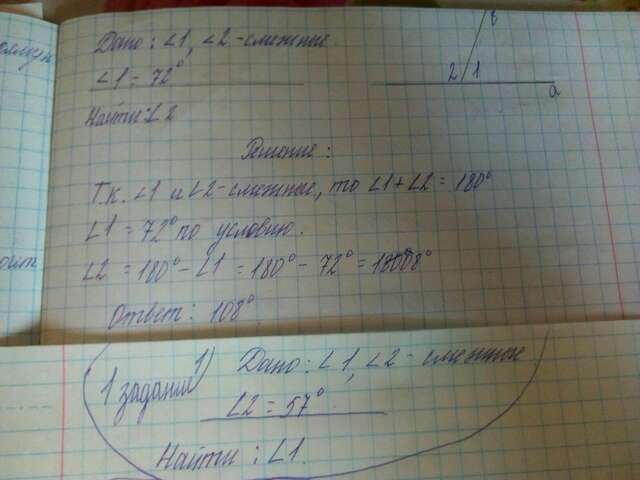 Дано: ∠1, ∠2 - смежные
∠1 = 72°
Найти: ∠2
в
2 1
а
Решение:
Т.к. ∠1 и ∠2 - смежные, то ∠1 + ∠2 = 180°
∠1 = 72° по условию.
∠2 = 180° - ∠1 = 180° - 72° = 108°
Ответ: 108°
1 задание 1) Дано: ∠1, ∠2 - смежные
∠2 = 57°
Найти: ∠1.